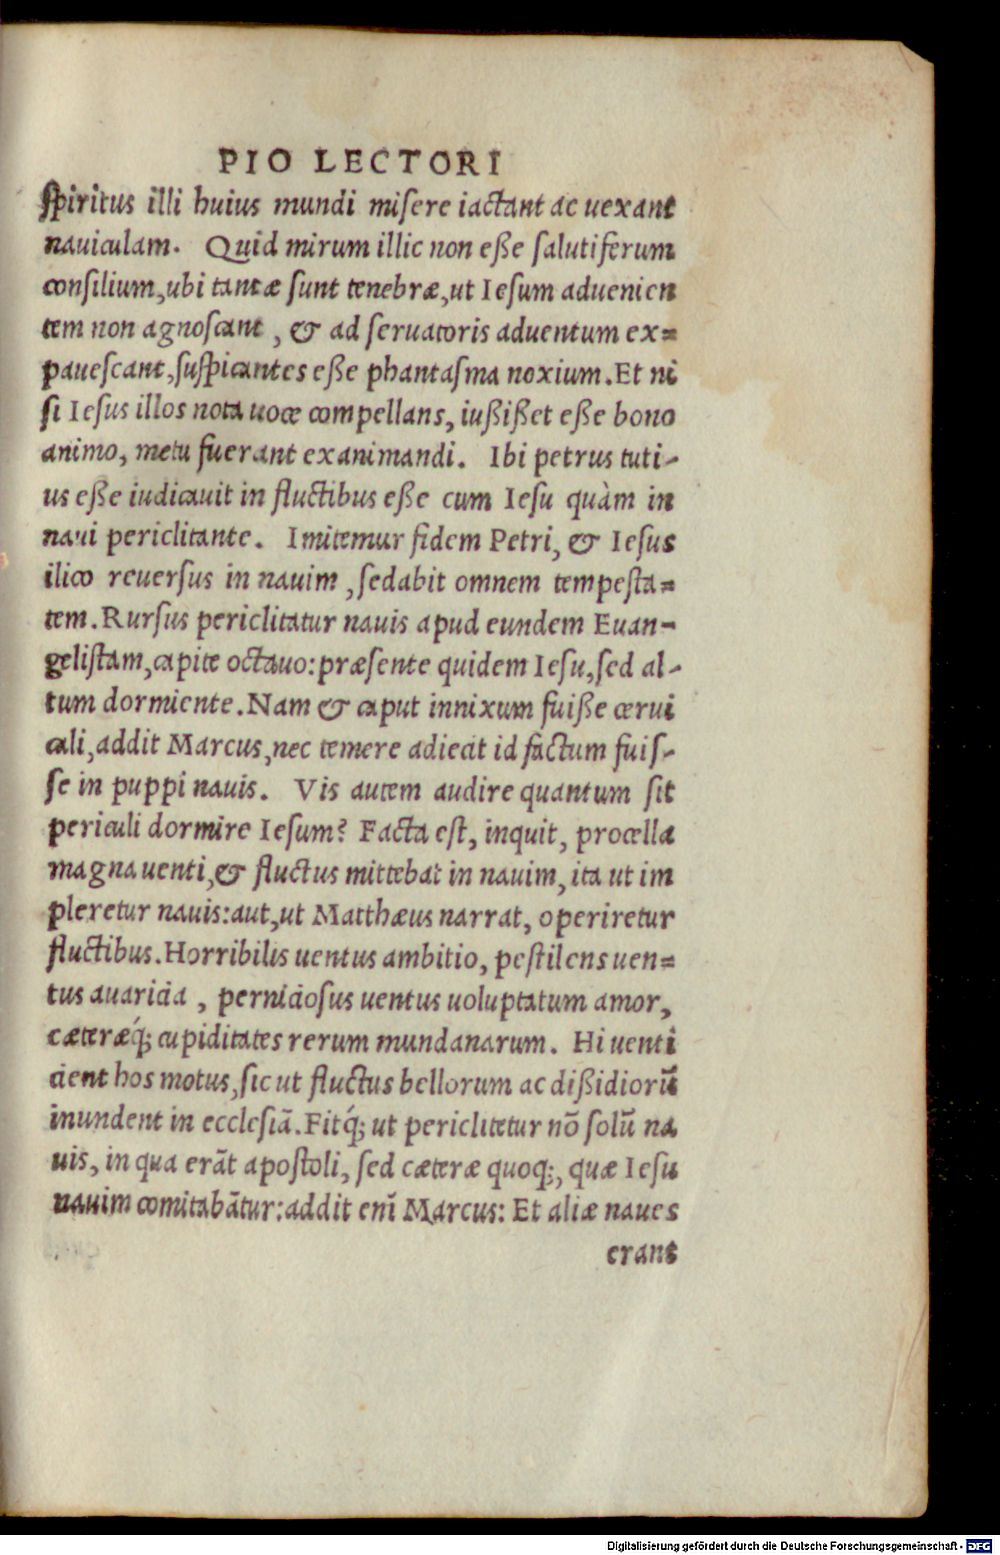 PIO LECTORI
spiritus illi huius mundi misere iactant ac uexant
nauiculam. Quid mirum illic non eße salutiferum
consilium, ubi tantæ sunt tenebræ, ut Iesum aduenien
tem non agnoscant, & ad seruatoris aduentum ex=
pauescant, suspicantes eße phantasma noxium. Et ni
si Iesus illos nota uoce compellans, iußißet eße bono
animo, metu fuerant exanimandi. Ibi petrus tuti-
us eße iudicauit in fluctibus eße cum Iesu quàm in
naui periclitante. Imitemur fidem Petri, & Iesus
ilico reuersus in nauim, sedabit omnem tempesta=
tem. Rursus periclitatur nauis apud eundem Euan-
gelistam, capite octauo: præsente quidem Iesu, sed al-
tum dormiente. Nam & caput innixum fuiße cerui
cali, addit Marcus, nec temere adiecit id factum fuis-
se in puppi nauis. Vis autem audire quantum sit
periculi dormire Iesum? Facta est, inquit, procella
magna uenti, & fluctus mittebat in nauim, ita ut im
pleretur nauis: aut, ut Matthæus narrat, operiretur
fluctibus. Horribilis uentus ambitio, pestilens uen=
tus auaricia, perniciosus uentus uoluptatum amor,
cæteræq́; cupiditates rerum mundanarum. Hi uenti
cient hos motus, sic ut fluctus bellorum ac dißidiorũ
inundent in ecclesiã. Fitq́; ut periclitetur nõ solũ na
uis, in qua erãt apostoli, sed cæteræ quoq;, quæ Iesu
nauim comitabãtur: addit enĩ Marcus: Et aliæ naues
erant
Digitalisierung gefördert durch die Deutsche Forschungsgemeinschaft - DFG